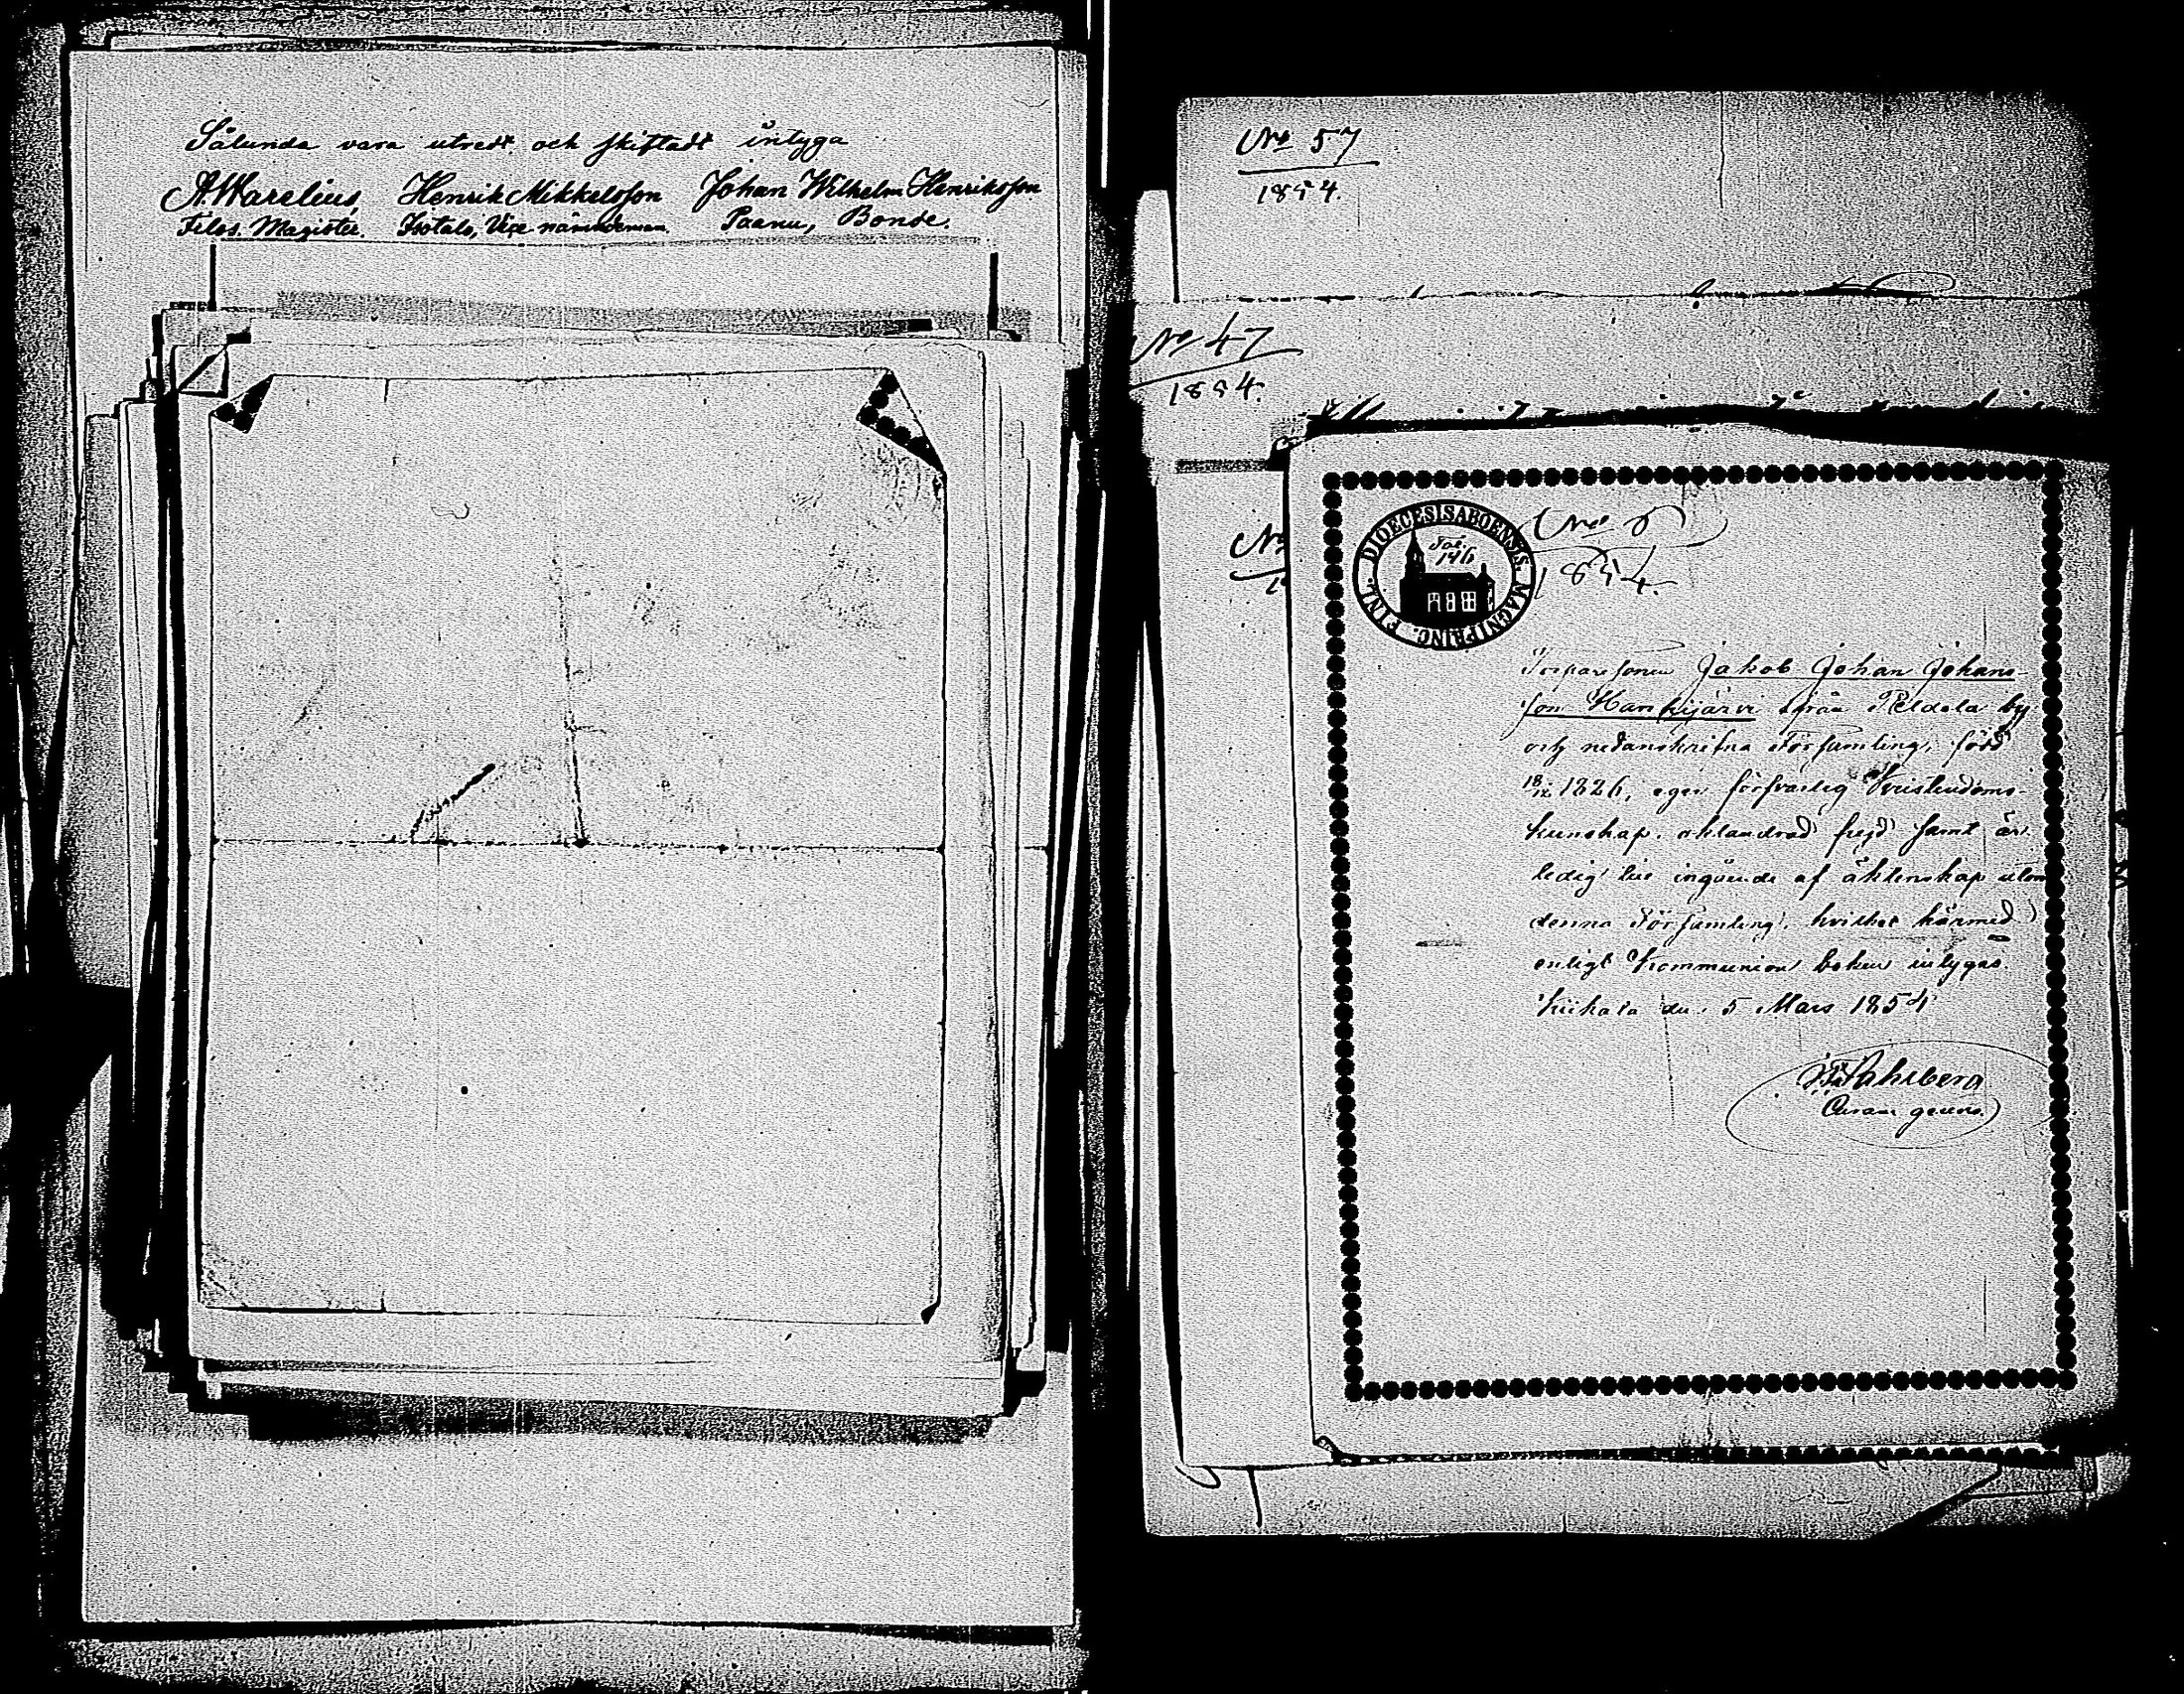 Sålunda vara utredt och skiftadt intyga
A. Warelius, Henrik Mikkelsson Johan Wilhelm Henriksson
Filos. Magister. Isotalo, Vice nämndeman Paanu, Bonde.
No 57
1854.
No 47
1854.
No
DIOECESIS ABOENSIS. MAGNI PRINC. FINL.
Fol. 146
No 8
1854.
Torparesonen Jakob Johan Johans-
son Hankijärvi från Peldola by
och nedanskrifna Församling, född
18/12 1826, eger försvarlig Kristendoms-
kunskap, oklandrad frejd samt är
ledig till ingående af äktenskap utom
denna Församling, hvilket härmed
enligt Kommunion boken intygas.
Kiikala den 5 Mars 1854
Wahlberg
Curam gerens.